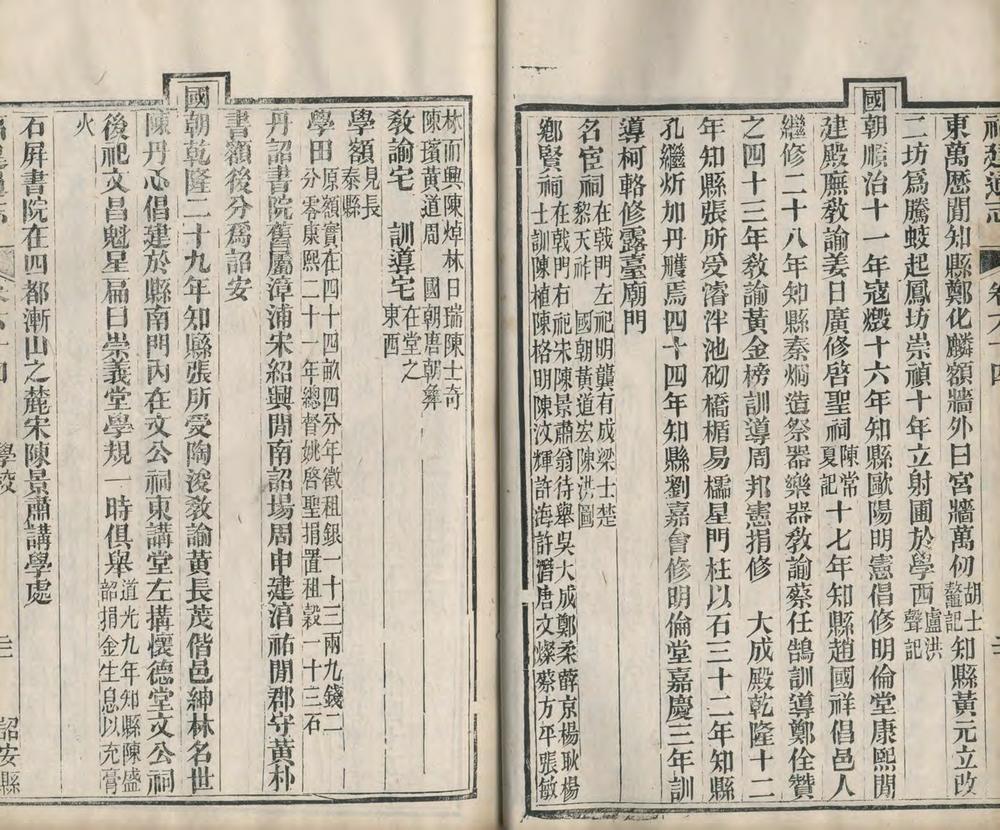 福建通志 卷六十四
東萬曆間知縣鄭化麟額牆外曰宮牆萬仞胡士鰲記知縣黃元立改
二坊爲騰蛟起鳳坊崇禎十年立射圃於學西盧洪聲記
國朝順治十一年寇燬十六年知縣歐陽明憲倡修明倫堂康熙間
建殿廡教諭姜日廣修啓聖祠陳常夏記十七年知縣趙國祥倡邑人
繼修二十八年知縣秦炯造祭器樂器教諭蔡任鵠訓導鄭佺贊
之四十三年教諭黃金榜訓導周邦憲捐修 大成殿乾隆十二
年知縣張所受濬泮池砌橋楯易櫺星門柱以石三十二年知縣
孔繼炘加丹雘焉四十四年知縣劉嘉會修明倫堂嘉慶三年訓
導柯輅修露臺廟門
名宦祠在戟門左祀明龔有成梁士楚黎天祚 國朝黃道宏陳洪圖
鄉賢祠在戟門右祀宋陳景肅翁待舉吳大成鄭柔薛京楊耿楊士訓陳植陳格明陳汶輝許海許潛唐文燦蔡方平張敏
林而興陳焯林日瑞陳士奇陳璸黃道周 國朝唐朝彝
教諭宅 訓導宅在堂之東西
學額見長泰縣
學田原額實在四十四畝四分年徵租銀一十三兩九錢二分零康熙二十一年總督姚啓聖捐置租穀一十三石
丹詔書院舊屬漳浦宋紹興間南詔場周申建淯祐間郡守黃朴
書額後分爲詔安
國朝乾隆二十九年知縣張所受陶浚教諭黃長茂偕邑紳林名世
陳丹心倡建於縣南門內在文公祠東講堂左搆懷德堂文公祠
後祀文昌魁星扁曰崇義堂學規一時俱舉道光九年知縣陳盛韶捐金生息以充膏
火
石屏書院在四都漸山之麓宋陳景肅講學處
學校 詔安縣